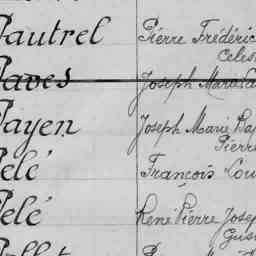 Pautrel Pierre Frédéric
Celes
Paves Joseph Marie
Payen Joseph Marie Ba
Pierre
Pelé François Lou
Pelé René Pierre Josep
Gus